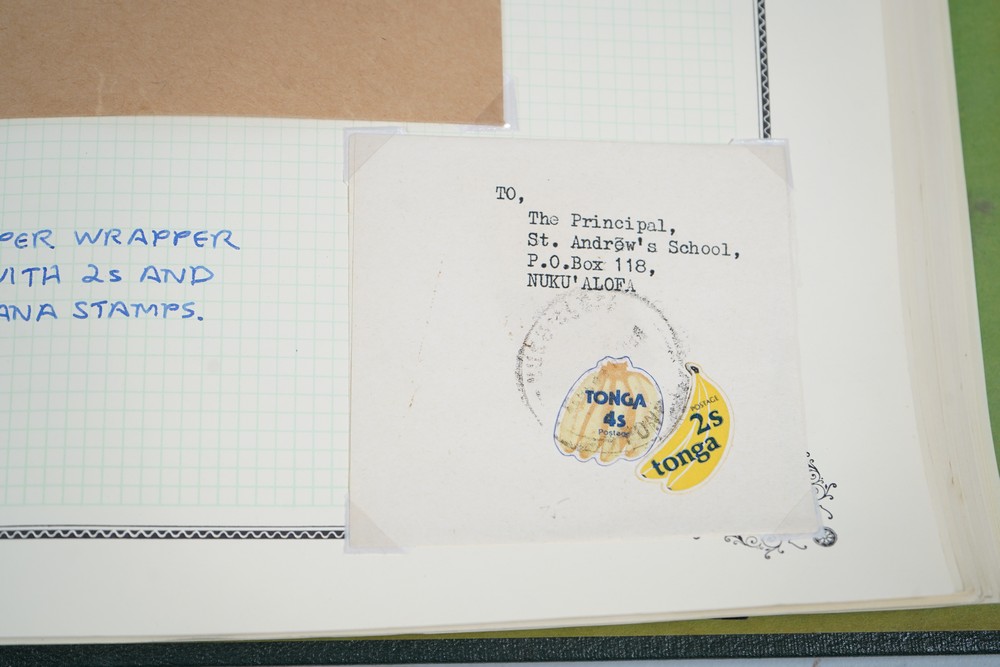 WRAPPER
2s AND
STAMPS.
TO,
The Principal,
St. Andrew's School,
P.O.Box 118,
NUKU'ALOFA
TONGA
4s
Postage
POSTAGE
2s
tonga